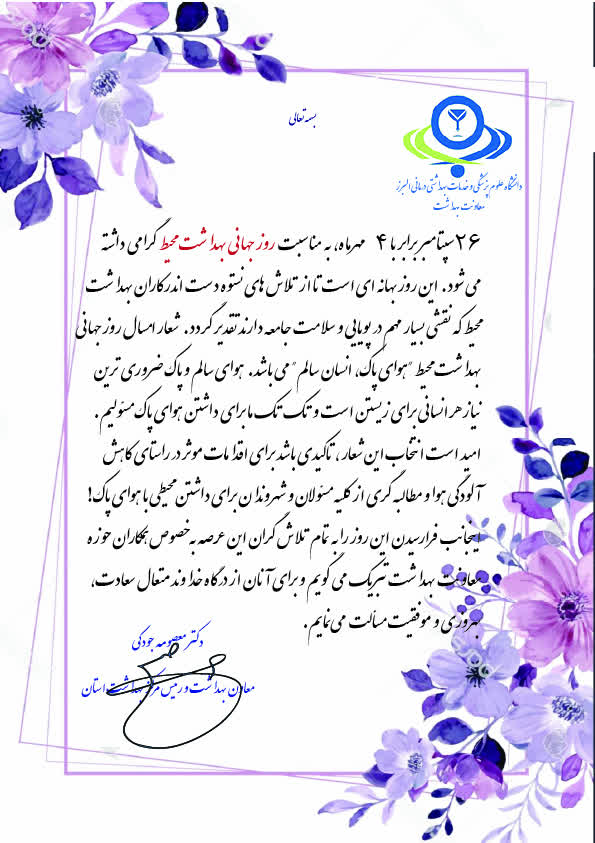 بسمه تعالی
دانشگاه علوم پزشکی و خدمات بهداشتی درمانی البرز
معاونت بهداشت
۲۶ سپتامبر برابر با ۴ مهرماه، به مناسبت روز جهانی بهداشت محیط گرامی داشته
می شود. این روز بهانه ای است تا از تلاش های نستوه دست اندرکاران بهداشت
محیط که نقشی بسیار مهم در پویایی و سلامت جامعه دارند تقدیر گردد. شعار امسال روز جهانی
بهداشت محیط "هوای پاک، انسان سالم" می باشد. هوای سالم و پاک ضروری ترین
نیاز هر انسانی برای زیستن است و تک تک ما برای داشتن هوای پاک مسئولیم.
امید است انتخاب این شعار، تاکیدی باشد برای اقدامات موثر در راستای کاهش
آلودگی هوا و مطالبه گری از کلیه مسئولان و شهروندان برای داشتن محیطی با هوای پاک!
اینجانب فرارسیدن این روز را به تمام تلاش گران این عرصه به خصوص همکاران حوزه
معاونت بهداشت تبریک می گویم و برای آنان از درگاه خداوند متعال سعادت،
بهروزی و موفقیت مسألت می نمایم.
دکتر معصومه جودکی
معاون بهداشت و رییس مرکز بهداشت استان